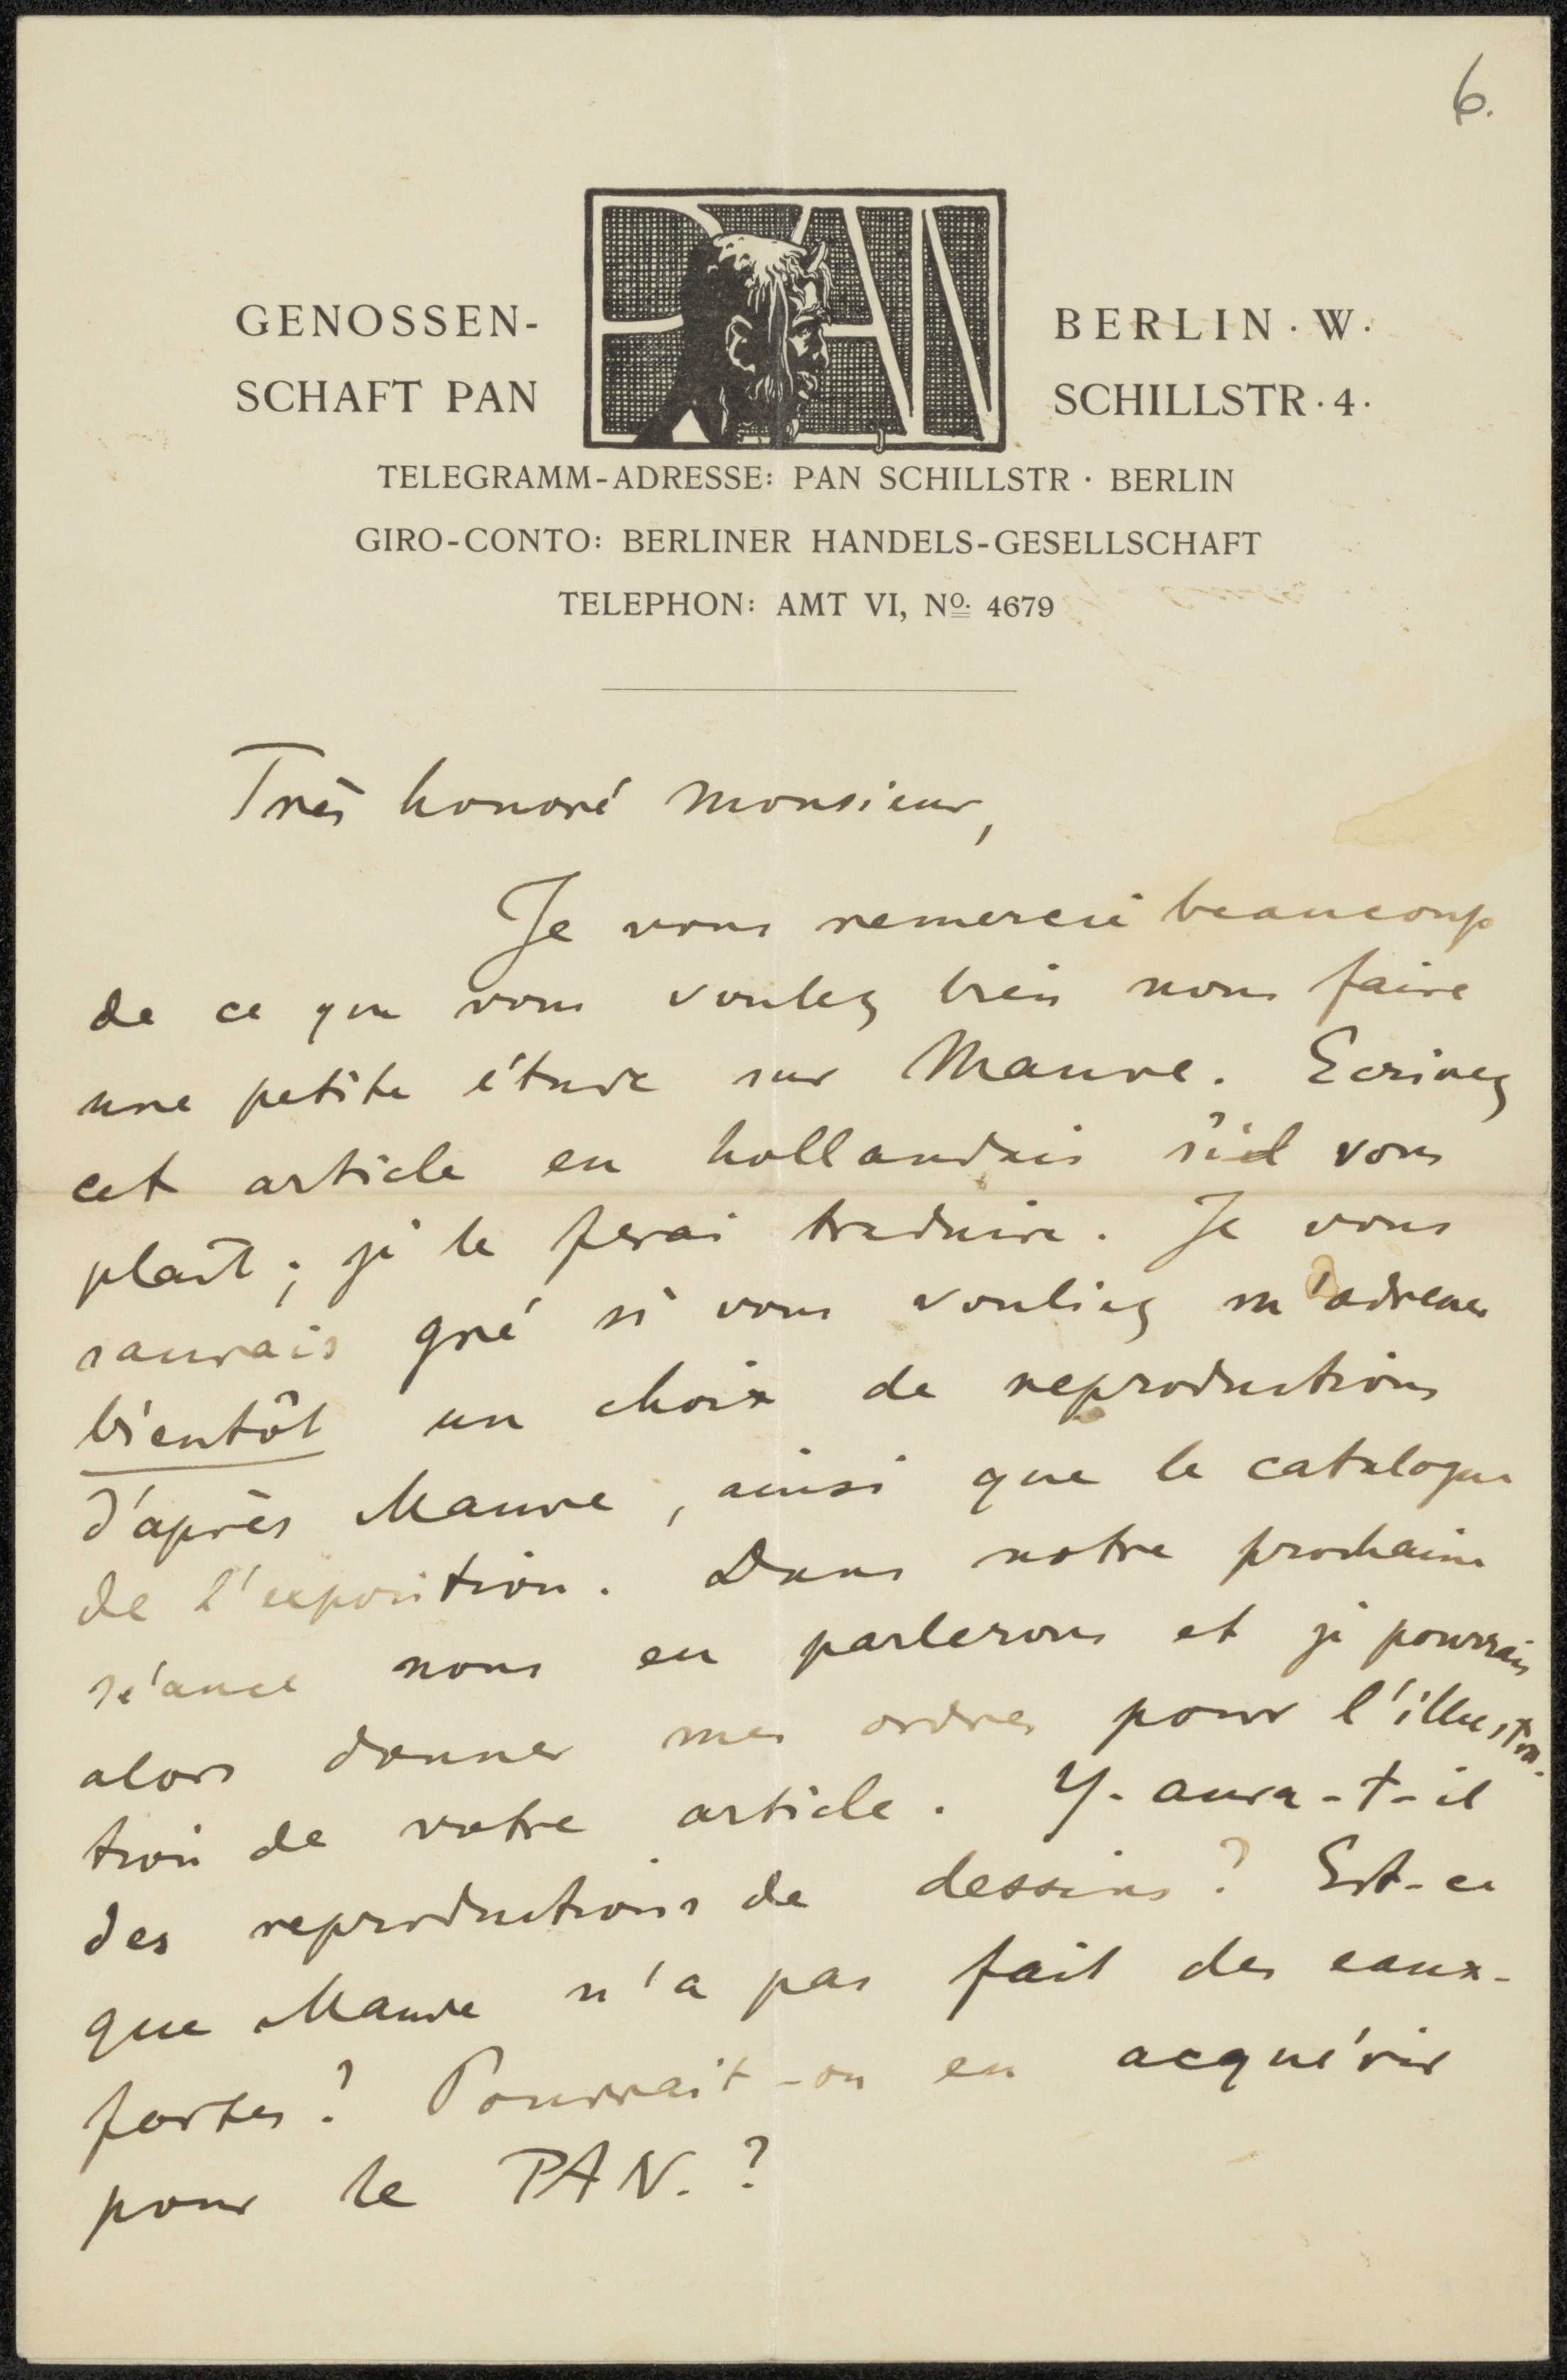 6.
PAN
GENOSSEN-
SCHAFT PAN
BERLIN · W ·
SCHILLSTR · 4 ·
TELEGRAMM-ADRESSE: PAN SCHILLSTR · BERLIN
GIRO-CONTO: BERLINER HANDELS-GESELLSCHAFT
TELEPHON: AMT VI, No. 4679
Très honoré Monsieur,
Je vous remercie beaucoup
de ce que vous voulez bien nous faire
une petite étude sur Mauve. Ecrivez
cet article en hollandais s'il vous
plaît; je le ferai traduire. Je vous
saurais gré si vous vouliez m'adresser
bientôt un choix de reproductions
d'après Mauve, ainsi que le catalogue
de l'exposition. Dans notre prochaine
séance nous en parlerons et je pourrais
alors donner mes ordres pour l'illustra-
tion de votre article. Y-aura-t-il
des reproductions de dessins? Est-ce
que Mauve n'a pas fait des eaux-
fortes? Pourrait-on en acquérir
pour le PAN.?